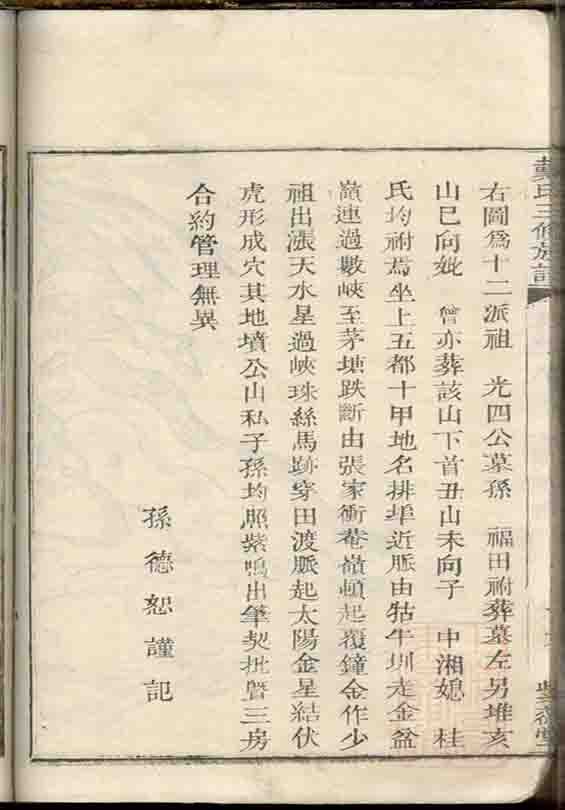 戴氏三修族譜
右圖爲十二派祖　光四公墓孫　福田祔葬墓左另堆亥
山巳向妣　曾亦葬該山下首丑山未向子　中湘媳　桂
氏均祔焉坐上五都十甲地名排埠近脈由牯牛圳走金盆
嶺連過數峽至茅塘跌斷由張家衝菴嶺頓起覆鐘金作少
祖出漲天水星過峽珠絲馬跡穿田渡脈起太陽金星結伏
虎形成穴其地墳公山私子孫均照紫鳴出筆契批暨三房
合約管理無異
孫德恕謹記